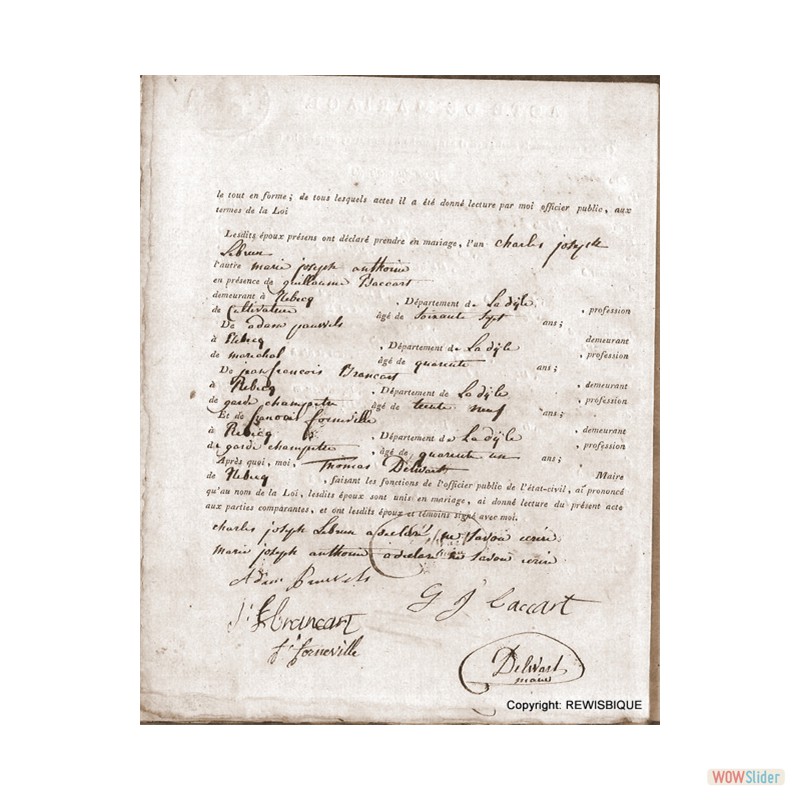 le tout en forme ; de tous lesquels actes il a été donné lecture par moi officier public, aux
termes de la Loi
Lesdits époux présens ont déclaré prendre en mariage, l'un charles joseph
Lebrun
l'autre marie joseph anthoine
en présence de guillaume Baccart
demeurant à Rebecq , Département de La dÿle , profession
de Cultivateur âgé de Soixante Sept ans ;
De adam pauvels demeurant
à Rebecq , Département de La dÿle , profession
de marechal âgé de quarente ans ;
De jean françois Brancart , demeurant
à Rebecq , Département de La dÿle , profession
de garde champetre âgé de trente neuf ans ;
Et de françois forneville , demeurant
à Rebecq , Département de La dÿle , profession
de garde champetre , âgé de quarente un ans ;
Après quoi, moi, Thomas Delwart Maire
de Rebecq , faisant les fonctions de l'officier public de l'état-civil, ai prononcé
qu'au nom de la Loi, lesdits époux sont unis en mariage, ai donné lecture du présent acte
aux parties comparantes, et ont lesdits époux et témoins signé avec moi.
charles joseph Lebrun a declaré ne savoir ecrire
marie joseph anthoine a declaré ne savoir ecrire
Adam
G J baccart
Brancart
f: forneville
Delwart
maire
Copyright: REWISBIQUE
WOWSlider